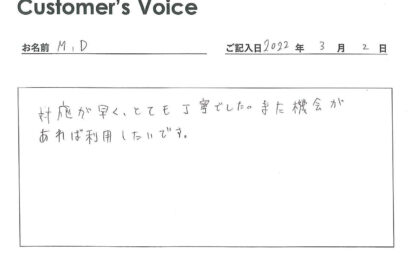 Customer's Voice
お名前 M,D ご記入日 2022 年 3 月 2 日
対応が早く、とても丁寧でした。また機会が
あれば利用したいです。